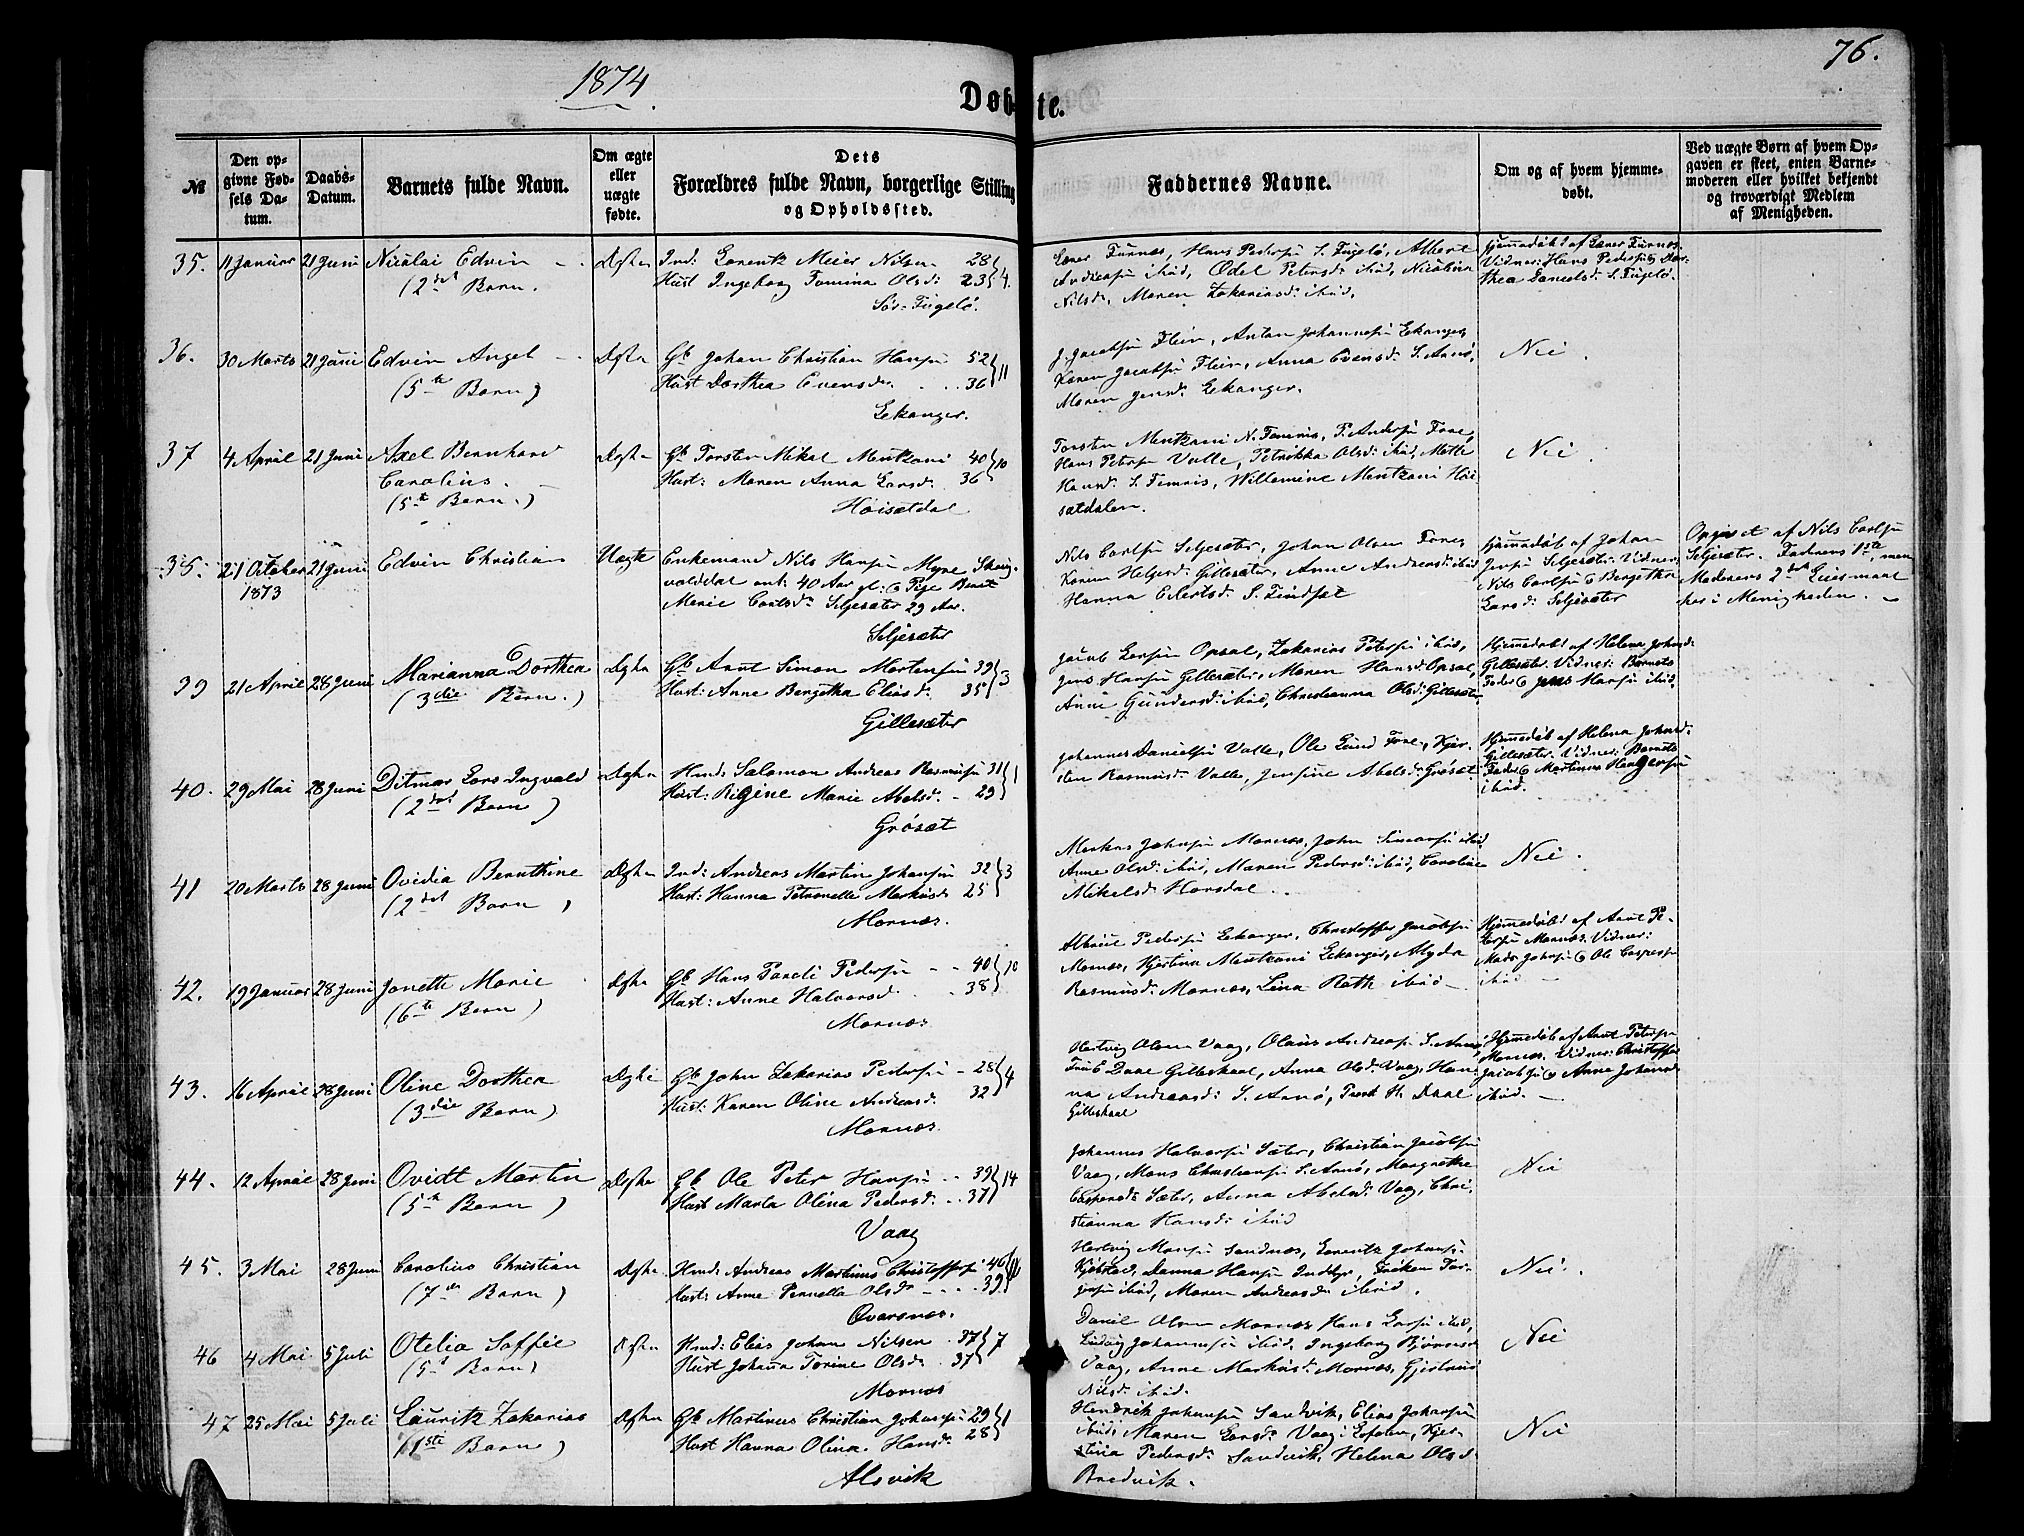 76.
1874
Døbte.
№
Den op-
givne Fød-
sels Da-
tum.
Daabs-
Datum.
Barnets fulde Navn.
Om ægte
eller
uægte
fødte.
Dets
Forældres fulde Navn, borgerlige Stilling
og Opholdssted.
Faddernes Navne.
Om og af hvem hjemme-
døbt.
Ved uægte Børn af hvem Op-
gaven er skeet, enten Barne-
moderen eller hvilket bekjendt
og troværdigt Medlem
af Menigheden.
35. 11 Januar 21 Juni Nicolai Edvin
(2det Barn.
Ind: Lorentz Meier Nilsen 28
Hust Ingeborg Tomina Olsd: 23 } 4.
Sør-Fugelø.
Furnæs, Hans Pedersn S. Fugelø, Albert
Andreasn ibid, Odel Petersd: ibid, Nicolina
Nilsd:, Maren Zakariasd: ibid.
Hjemmedøbt af Furnæs.
Vidner: Hans Pedersn
thea Danielsd: S. Fugelø.
36. 30 Marts 21 Juni Edvin Angel
(5te Barn)
Gb Johan Christian Hansn 52
Hust Dorthea Evensdr 36 } 11
Ekanger.
J. Jacobsn Flein, Anton Johannesn Ekanger,
Karen Jacobsn Flein, Anna Evensd: S. Arnø,
Maren Jensd: Ekanger.
Nei.
37 4 April 21 Juni Axel Bernhard
Carolius.
(5te Barn.)
Gb Torsten Mikal Mentzoni 40
Hust: Maren Anna Larsd: 36 } 10
Høisætdal
Torsten Mentzoni N. P. Andersn Fore,
Hans Petersn Valle, Petrikka Olsd: ibid, Mette
Hansd: S. Willemine Mentzoni Høi-
sætdalen.
Nei.
35. 21 October 21 Juni Edvin Christian
1873
Uægte
Enkemand Nils Hansn Myre
ant: 40 Aar gl: & Pige Berit
Marie Carlsd: Seljesæter 29 Aar.
Seljesæter
Nils Carlsn Seljesæter, Johan Olsen Fore,
Karen Helgesd: Gillesæter, Anne Andreasd: ibid
Hanna Eilertsd: S.
Hjemmedøbt af Johan
Jensn Seljesæter. Vidner:
Nils Carlsn & Bergetha
Larsd: Seljesæter
Opgivet af Nils Carlsn
Seljesæter. Faderens 1ste, men
Moderens 2det Leiermaal
her i Menigheden.
39 21 April 28 Juni Marianna Dorthea
(3die Barn.)
Gb Arnt Simon Mortensn 39
Hust: Anne Bergetha Eliasd: 35 } 3
Gillesæter
Jacob Larsn Opsal, Zakarias Petersn ibid,
Jens Hansn Gillesæter, Maren Hansd: Opsal,
Anne Gundersd: ibid, Christianna Olsd: Gillesæter
Hjemmedøbt af Helena Johnsd:
Gillesæter. Vidner: Barnets
Fader & Jens Hansn ibid.
40. 29 Mai 28 Juni Ditmar Lars Ingvald
(2det Barn)
Hmd: Salomon Andreas Rasmusn 31
Hust: Regine Marie Abelsd: 29 } 1
Grøsæt
Johannes Danielsn Valle, Ole Lund Fore, Kjer-
sten Rasmusd: Valle, Jensine Abelsd: Grøsæt
Hjemmedøbt af Helena Johnsd:
Gillesæter. Vidner: Barnets
Fader & Martinus
ibid.
41 20 Marts 28 Juni Ovidia Bernthine
(2det Barn)
Ind: Andreas Martin Johnsn 32
Hust: Hanna Petronelle Markusd: 25 } 3
Mornæs.
Markus Johnsn Mornæs, John ibid
Anne Olsd: ibid, Maren Pedersd: ibid, Caroline
Mikelsd: Horsdal.
Nei.
42. 19 Januar 28 Juni Jonette Marie
(6te Barn)
Gb Hans Pareli Pedersn 40
Hust: Anne Halvorsd: 38 } 10
Mornæs
Pedersn Ekanger, Christoffer Jacobsn
Mornæs, Kjertina Mentzoni Ekanger, Alyda
Rasmusd: Mornæs, Lina Rath ibid
Hjemmedøbt af Arnt Pe-
tersn Mornæs. Vidner:
Mads Johnsn & Ole Caspersn
ibid
43. 16 April 28 Juni Oline Dorthea
(3die Barn)
Gb John Zakarias Pedersn 28
Hust: Karen Oline Andreasd: 32 } 4
Mornæs
Hartvig Olsen Vaag, Olaus Andreasn S. Arnø,
Daae Gilleskaal, Anna Olsd: Vaag, Han-
na Andreasd: S. Arnø, H. Daae
Gilleskaal
Hjemmedøbt af Arnt Petersn
Mornæs. Vidner: Christoffer
Jacobsn & Anna Johannsd
ibid.
44. 12 April 28 Juni Ovidt Martin
(5te Barn)
Gb Ole Peter Hansn 39
Hust Marta Olina Pedersd: 37 } 14
Vaag
Johannes Halvorsn Sæter, Christian Jacobsn
Vaag, Mons Christiansn S. Arnø, Margrethe
Caspersd: Sæter, Anna Abelsd: Vaag, Chri-
stianna Hansd: ibid
Nei
45. 3 Mai 28 Juni Carolius Christian
(7de Barn)
Hmd: Andreas Martinus Christoffsn 46
Hust: Anne Pernelle Olsdr 39
Qvarsnæs.
Hartvig Monsn Sandnæs, Lorentz Johansn
Kjøbstad, Hansn Indbyr,
ibid, Maren Andreasd: ibid.
Nei.
46 4 Mai 5 Juli Otelia Soffie
(5te Barn)
Hmd: Elias Johan Nilsen 37
Hust Johanna Torine Olsd: 37 } 7
Mornæs
Daniel Olsen Mornæs, Hans Larsn ibid,
Ludvig Johannsn ibid, Ingeborg Bjørnsen
Vaag, Anne Markusd: Mornæs, Gjertrud
Nilsd: ibid.
Nei
47 25 Mai 5 Juli Lauritz Zakarias
(1ste Barn)
Gb Martinus Christian Johnsn 29
Hust Hanna Olina Hansd: 28 } 1
Alsvik
Hendrik Johansn Sandvik, Elias Johansn
ibid, Maren Larsd: Vaag, Kjer-
stina Pedersd: Sandvik, Helena Olsd:
Bredvik.
Nei